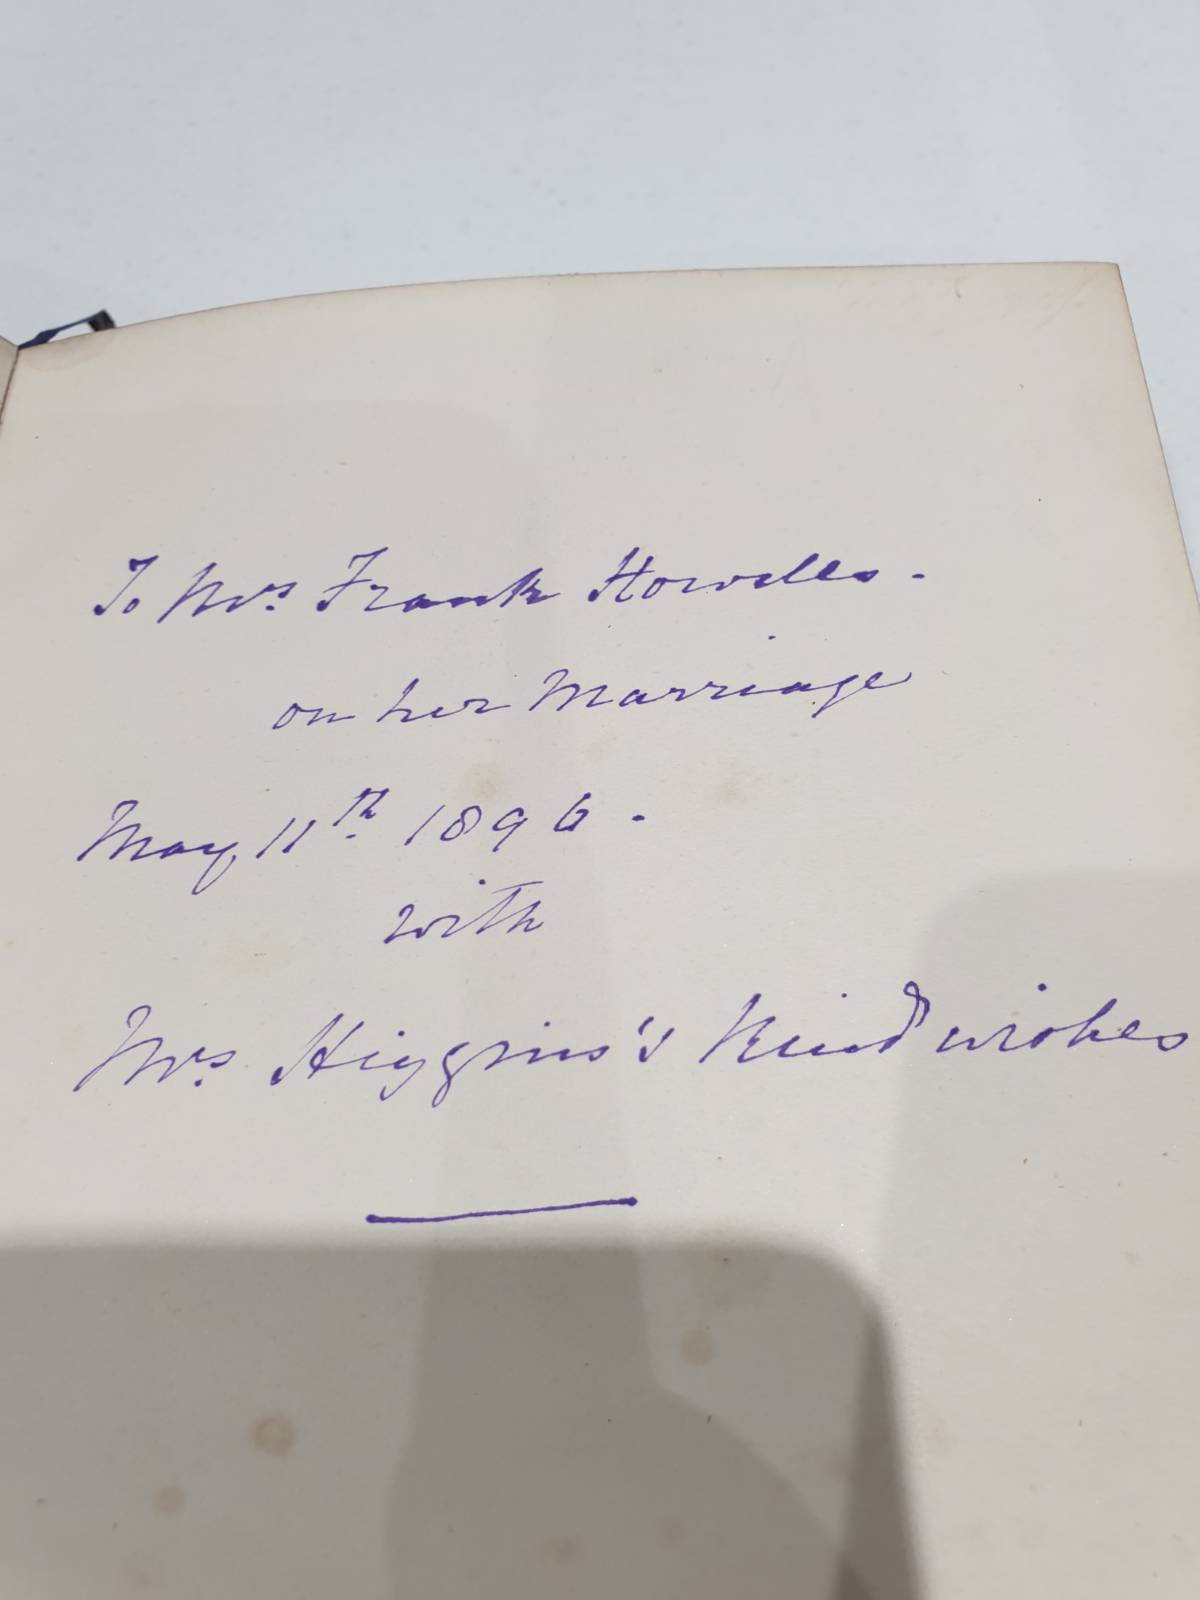 To Mrs. Frank Howells.
on her Marriage
May 11th. 1896.
with
Mrs. Higgins's Kind wishes